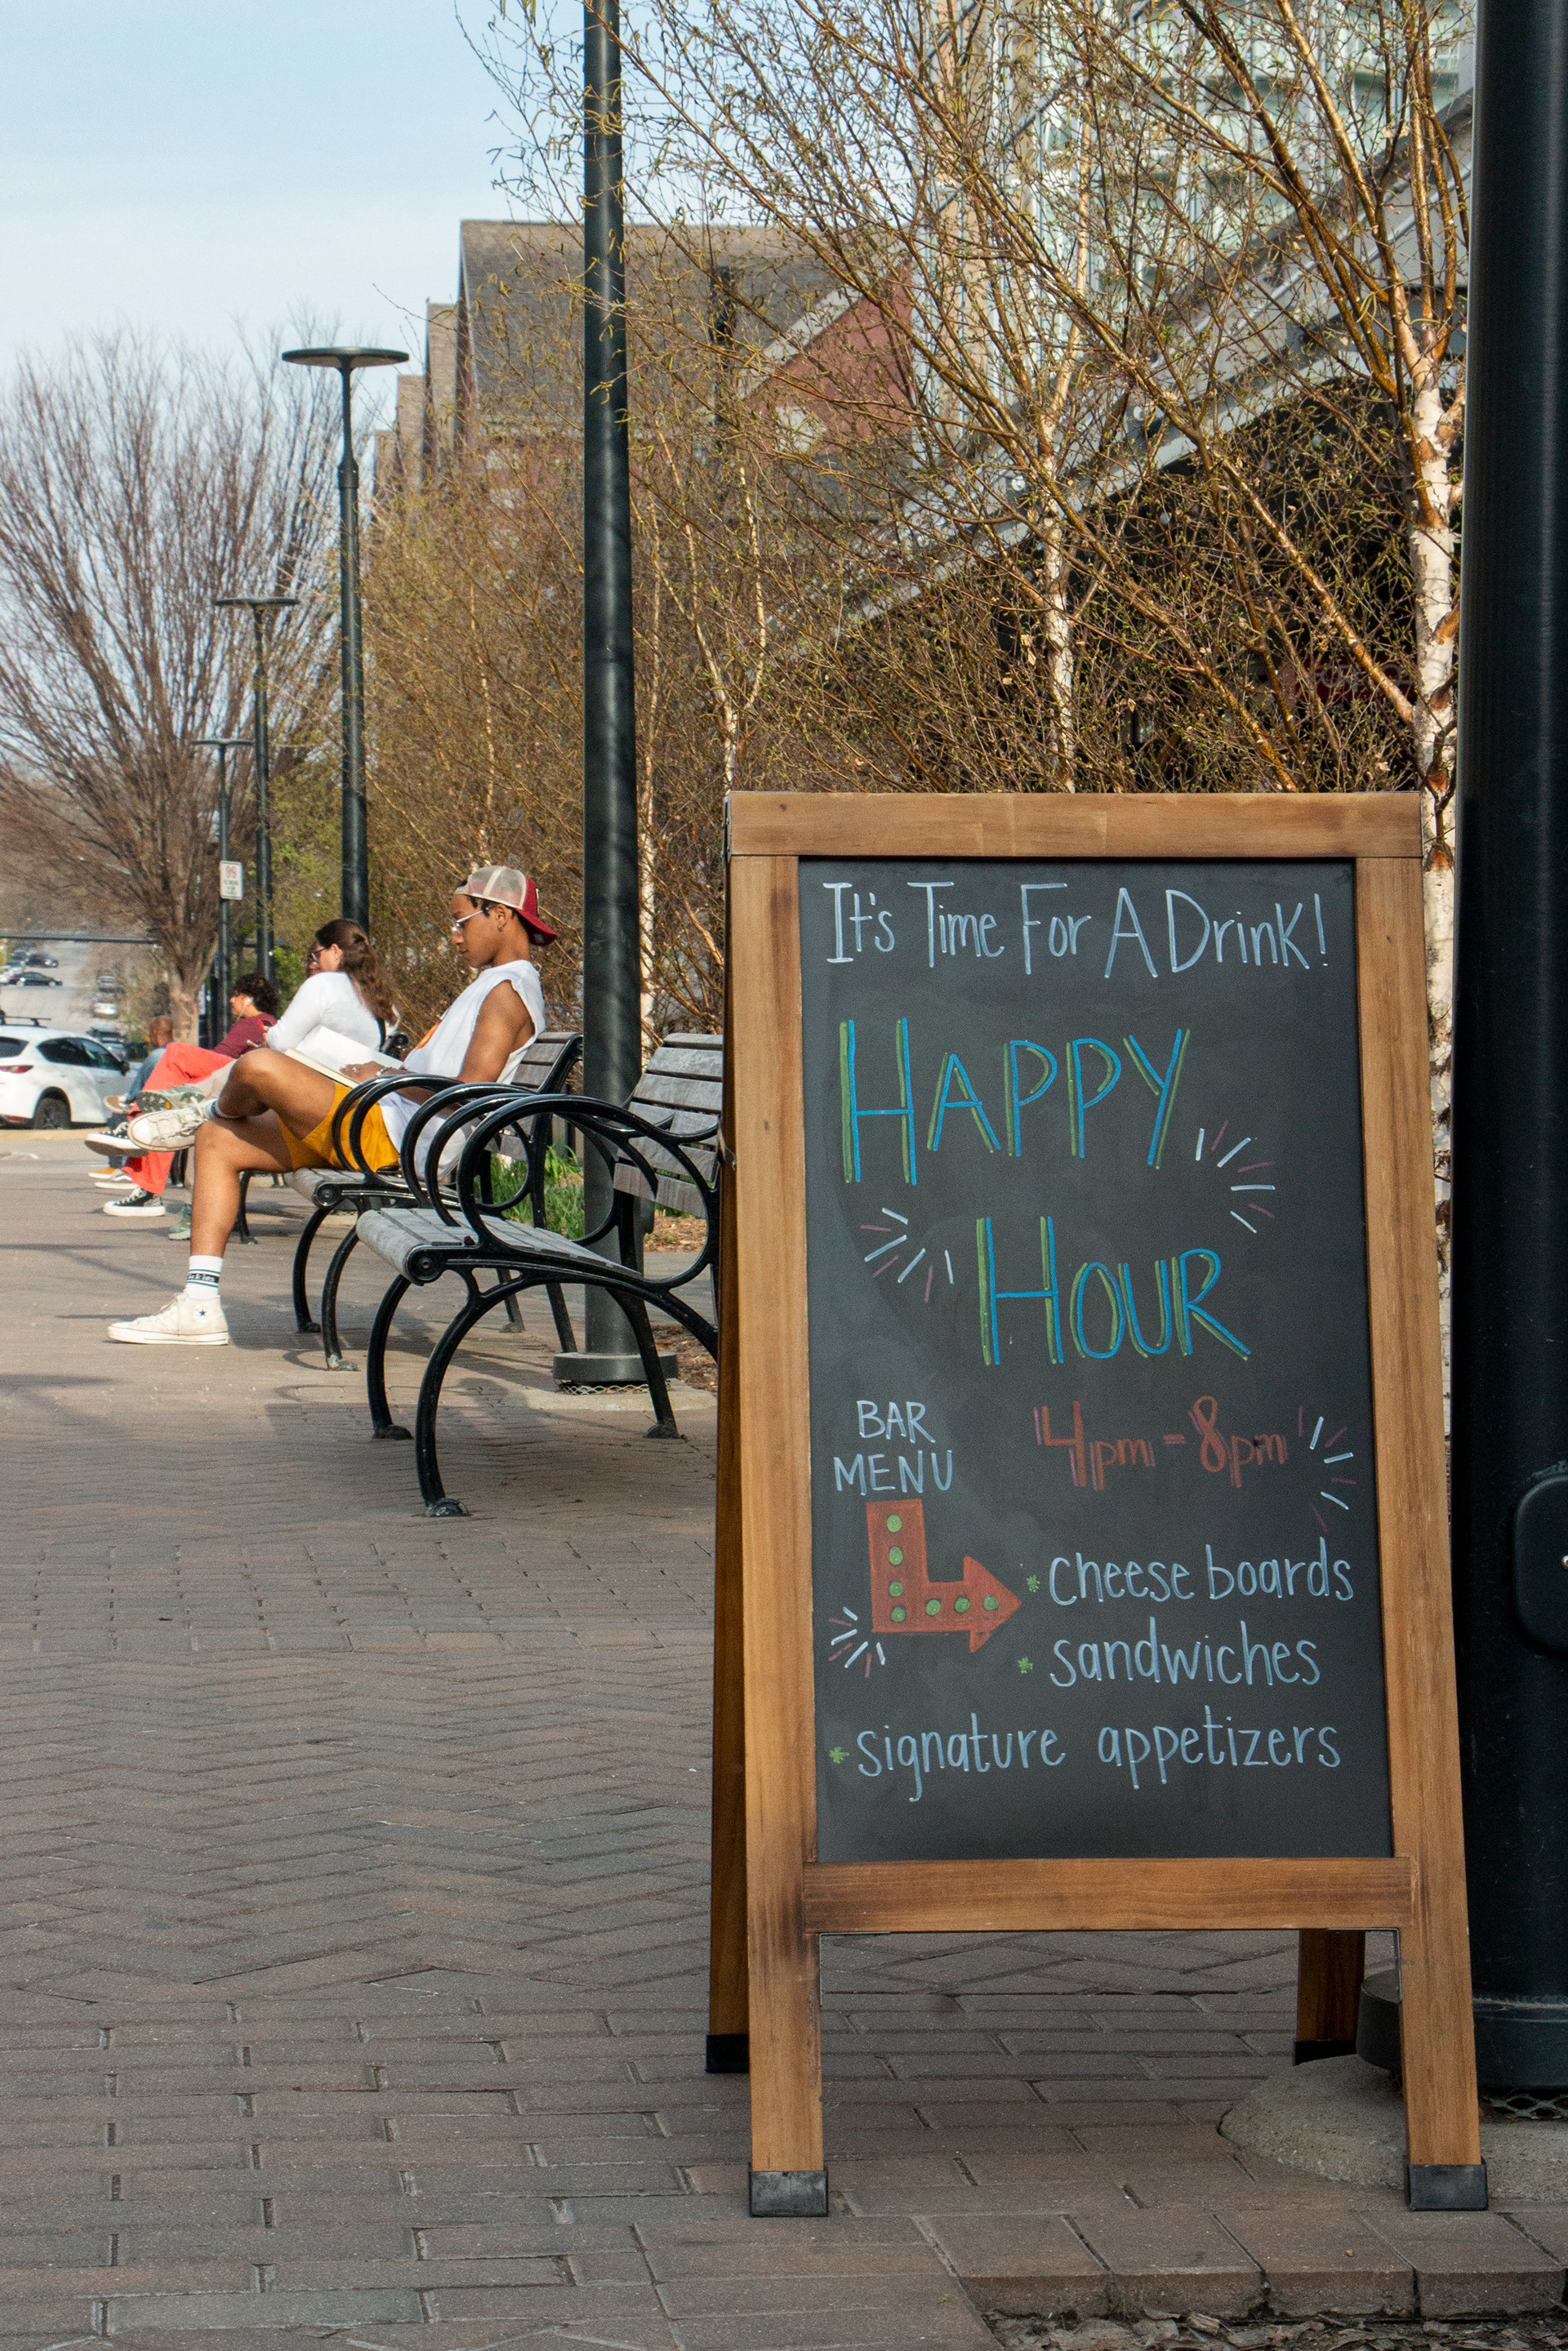 It's Time For A Drink!
HAPPY
HOUR
BAR
MENU
4pm - 8pm
* cheese boards
* sandwiches
* signature appetizers